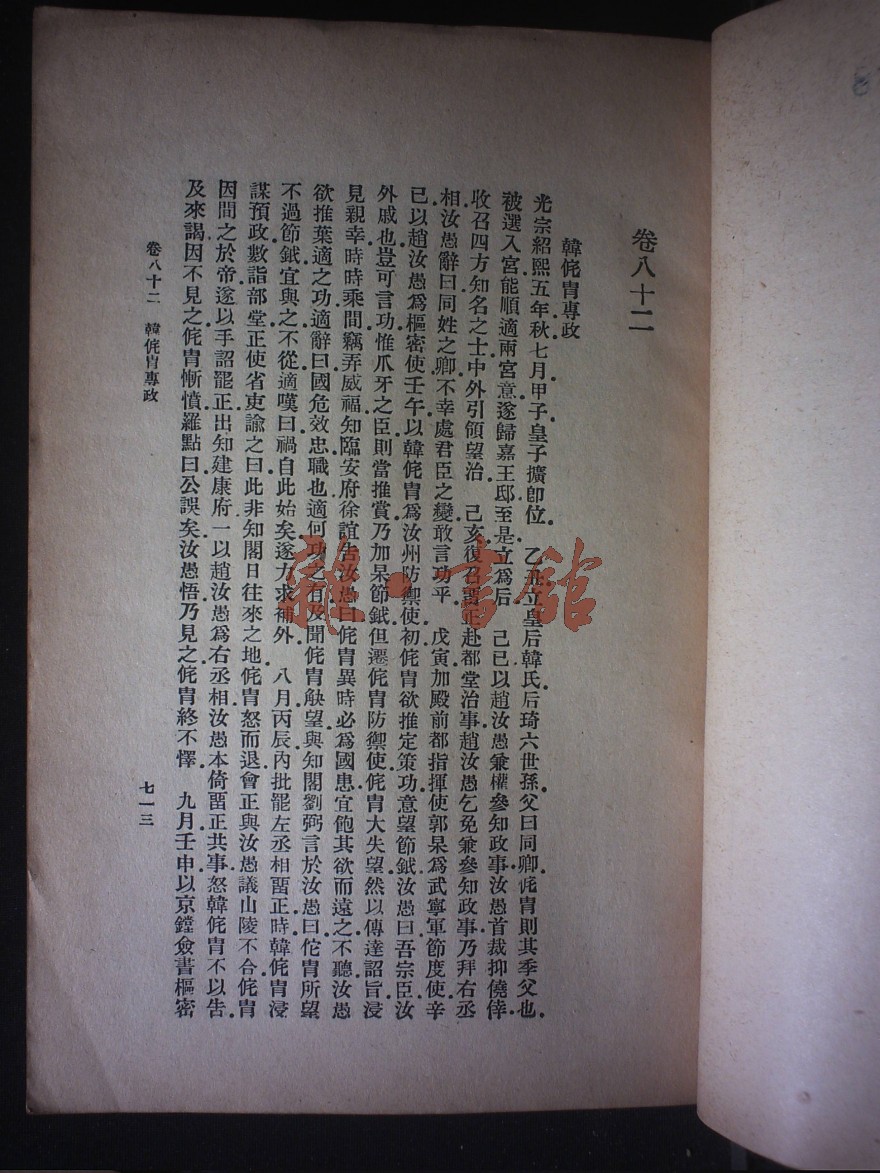 卷八十二
韓侂冑專政
光宗紹熙五年秋七月甲子皇子擴卽位．乙丑立皇后韓氏后琦六世孫父曰同卿侂冑則其季父也．
被選入宮能順適兩宮意遂歸嘉王邸至是立爲后．己巳以趙汝愚兼權參知政事汝愚首裁抑僥倖．
收召四方知名之士中外引領望治．己亥復召留正赴都堂治事趙汝愚乞免兼參知政事乃拜右丞
相．汝愚辭曰同姓之卿不幸處君臣之變敢言功乎．戊寅加殿前都指揮使郭杲爲武寧軍節度使辛
已以趙汝愚爲樞密使壬午以韓侂冑爲汝州防禦使初侂冑欲推定策功意望節鉞汝愚曰吾宗臣汝
外戚也豈可言功惟爪牙之臣則當推賞乃加杲節鉞但遷侂冑防禦使侂冑大失望然以傳達詔旨浸
見親幸時時乘間竊弄威福知臨安府徐誼告汝愚曰侂冑異時必爲國患宜飽其欲而遠之不聽汝愚
欲推葉適之功適辭曰國危效忠職也適何功之有及聞侂冑觖望與知閣劉弼言於汝愚曰侂冑所望
不過節鉞宜與之不從適嘆曰禍自此始矣遂力求補外．八月丙辰內批罷左丞相留正時韓侂冑浸
謀預政數詣部堂正使省吏諭之曰此非知閣日往來之地侂冑怒而退會正與汝愚議山陵不合侂冑
因間之於帝遂以手詔罷正出知建康府一以趙汝愚爲右丞相汝愚本倚留正共事怒韓侂冑不以告．
及來謁因不見之侂冑慚憤羅點曰公誤矣汝愚悟乃見之侂冑終不懌．九月壬申以京鏜僉書樞密
卷八十二　韓侂冑專政
七一三
雜·書館